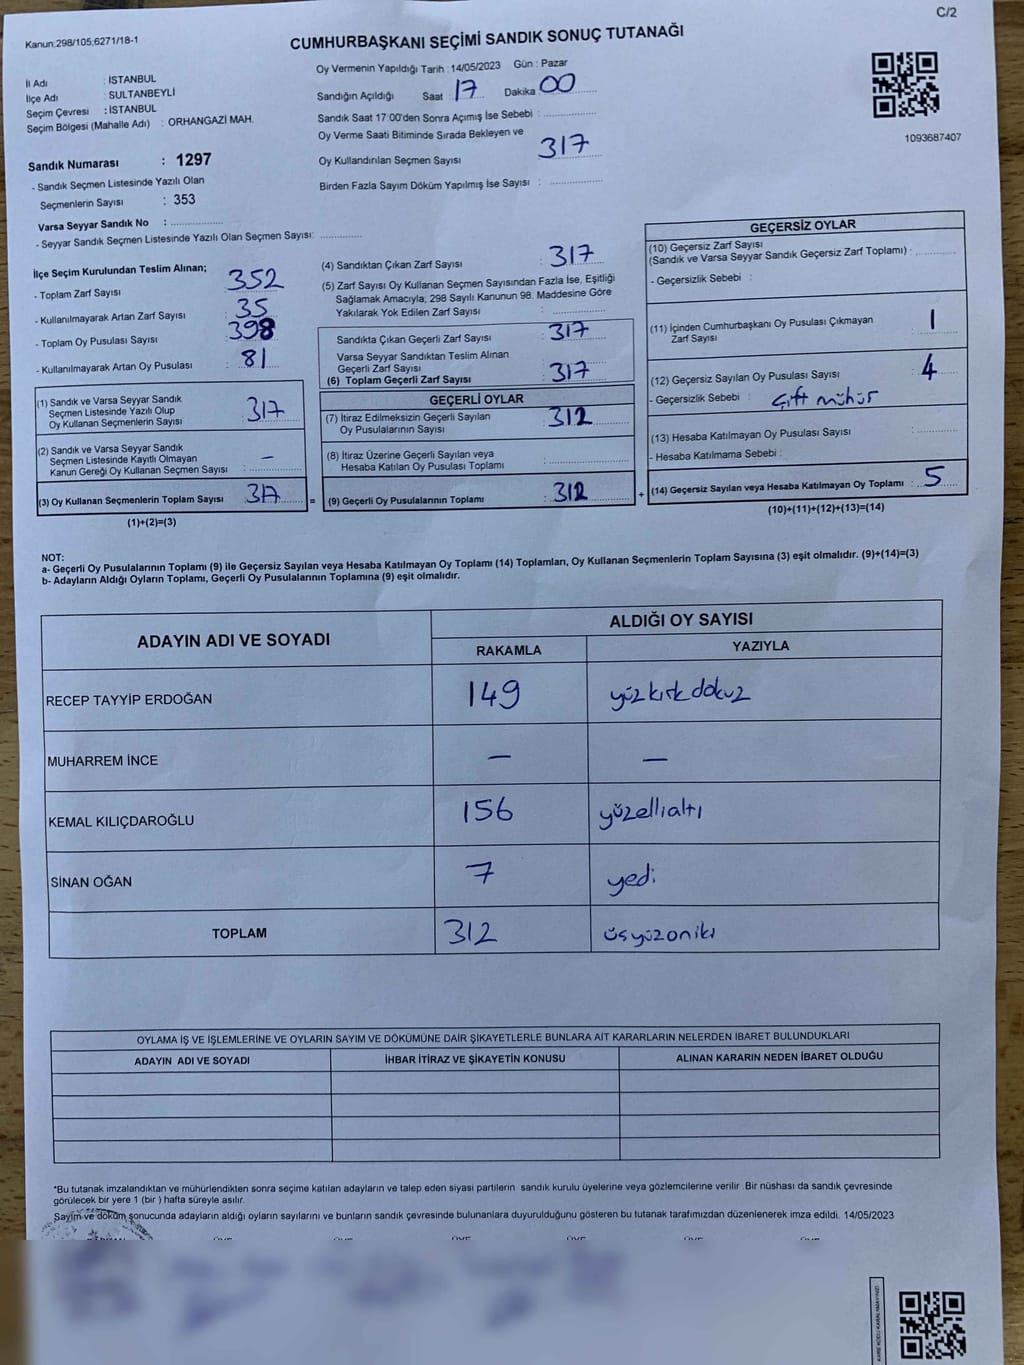 C/2
Kanun;298/105;6271/18-1
CUMHURBAŞKANI SEÇİMİ SANDIK SONUÇ TUTANAĞI
İl Adı : İSTANBUL
İlçe Adı : SULTANBEYLİ
Seçim Çevresi : İSTANBUL
Seçim Bölgesi (Mahalle Adı) : ORHANGAZİ MAH.
Sandık Numarası : 1297
- Sandık Seçmen Listesinde Yazılı Olan
Seçmenlerin Sayısı : 353
Varsa Seyyar Sandık No :
- Seyyar Sandık Seçmen Listesinde Yazılı Olan Seçmen Sayısı:
Oy Vermenin Yapıldığı Tarih : 14/05/2023 Gün : Pazar
Sandığın Açıldığı Saat 17 Dakika 00
Sandık Saat 17:00'den Sonra Açmış İse Sebebi :
Oy Verme Saati Bitiminde Sırada Bekleyen ve
Oy Kullandırılan Seçmen Sayısı 317
Birden Fazla Sayım Döküm Yapılmış İse Sayısı :
1093687407
İlçe Seçim Kurulundan Teslim Alınan;
- Toplam Zarf Sayısı : 352
- Kullanılmayarak Artan Zarf Sayısı : 35
- Toplam Oy Pusulası Sayısı : 398
- Kullanılmayarak Artan Oy Pusulası : 81
(1) Sandık ve Varsa Seyyar Sandık
Seçmen Listesinde Yazılı Olup
Oy Kullanan Seçmenlerin Sayısı : 317
(2) Sandık ve Varsa Seyyar Sandık
Seçmen Listesinde Kayıtlı Olmayan
Kanun Gereği Oy Kullanan Seçmen Sayısı : –
(3) Oy Kullanan Seçmenlerin Toplam Sayısı 317
(1)+(2)=(3)
(4) Sandıktan Çıkan Zarf Sayısı : 317
(5) Zarf Sayısı Oy Kullanan Seçmen Sayısından Fazla İse, Eşitliği
Sağlamak Amacıyla; 298 Sayılı Kanunun 98. Maddesine Göre
Yakılarak Yok Edilen Zarf Sayısı :
Sandıkta Çıkan Geçerli Zarf Sayısı : 317
Varsa Seyyar Sandıktan Teslim Alınan
Geçerli Zarf Sayısı :
(6) Toplam Geçerli Zarf Sayısı : 317
GEÇERLİ OYLAR
(7) İtiraz Edilmeksizin Geçerli Sayılan
Oy Pusulalarının Sayısı : 312
(8) İtiraz Üzerine Geçerli Sayılan veya
Hesaba Katılan Oy Pusulası Toplamı :
= (9) Geçerli Oy Pusulalarının Toplamı : 312
GEÇERSİZ OYLAR
(10) Geçersiz Zarf Sayısı
(Sandık ve Varsa Seyyar Sandık Geçersiz Zarf Toplamı) :
- Geçersizlik Sebebi :
(11) İçinden Cumhurbaşkanı Oy Pusulası Çıkmayan
Zarf Sayısı 1
(12) Geçersiz Sayılan Oy Pusulası Sayısı : 4
- Geçersizlik Sebebi : Çift mühür
(13) Hesaba Katılmayan Oy Pusulası Sayısı :
- Hesaba Katılmama Sebebi :
+ (14) Geçersiz Sayılan veya Hesaba Katılmayan Oy Toplamı : 5
(10)+(11)+(12)+(13)=(14)
NOT:
a- Geçerli Oy Pusulalarının Toplamı (9) ile Geçersiz Sayılan veya Hesaba Katılmayan Oy Toplamı (14) Toplamları, Oy Kullanan Seçmenlerin Toplam Sayısına (3) eşit olmalıdır. (9)+(14)=(3)
b- Adayların Aldığı Oyların Toplamı, Geçerli Oy Pusulalarının Toplamına (9) eşit olmalıdır.
ADAYIN ADI VE SOYADI ALDIĞI OY SAYISI
RAKAMLA YAZIYLA
RECEP TAYYİP ERDOĞAN 149 yüzkırkdokuz
MUHARREM İNCE – –
KEMAL KILIÇDAROĞLU 156 yüzellialtı
SİNAN OĞAN 7 yedi
TOPLAM 312 üsyüzoniki
OYLAMA İŞ VE İŞLEMLERİNE VE OYLARIN SAYIM VE DÖKÜMÜNE DAİR ŞİKAYETLERLE BUNLARA AİT KARARLARIN NELERDEN İBARET BULUNDUKLARI
ADAYIN ADI VE SOYADI İHBAR İTİRAZ VE ŞİKAYETİN KONUSU ALINAN KARARIN NEDEN İBARET OLDUĞU
*Bu tutanak imzalandıktan ve mühürlendikten sonra seçime katılan adayların ve talep eden siyasi partilerin sandık kurulu üyelerine veya gözlemcilerine verilir .Bir nüshası da sandık çevresinde
görülecek bir yere 1 (bir ) hafta süreyle asılır.
Sayım ve döküm sonucunda adayların aldığı oyların sayılarını ve bunların sandık çevresinde bulunanlara duyurulduğunu gösteren bu tutanak tarafımızdan düzenlenerek imza edildi. 14/05/2023